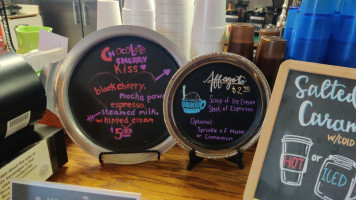 Chocolate
Cherry
Kiss
black cherry,
mocha powder,
espresso,
steamed milk,
whipped cream
$5.00
Affogato
$2.50
Scoop of Ice Cream
Shot of Espresso
Optional
Sprinkle of Mocha
or Cinnamon
Salted
Caram
w/COLD
HOT
or
ICED